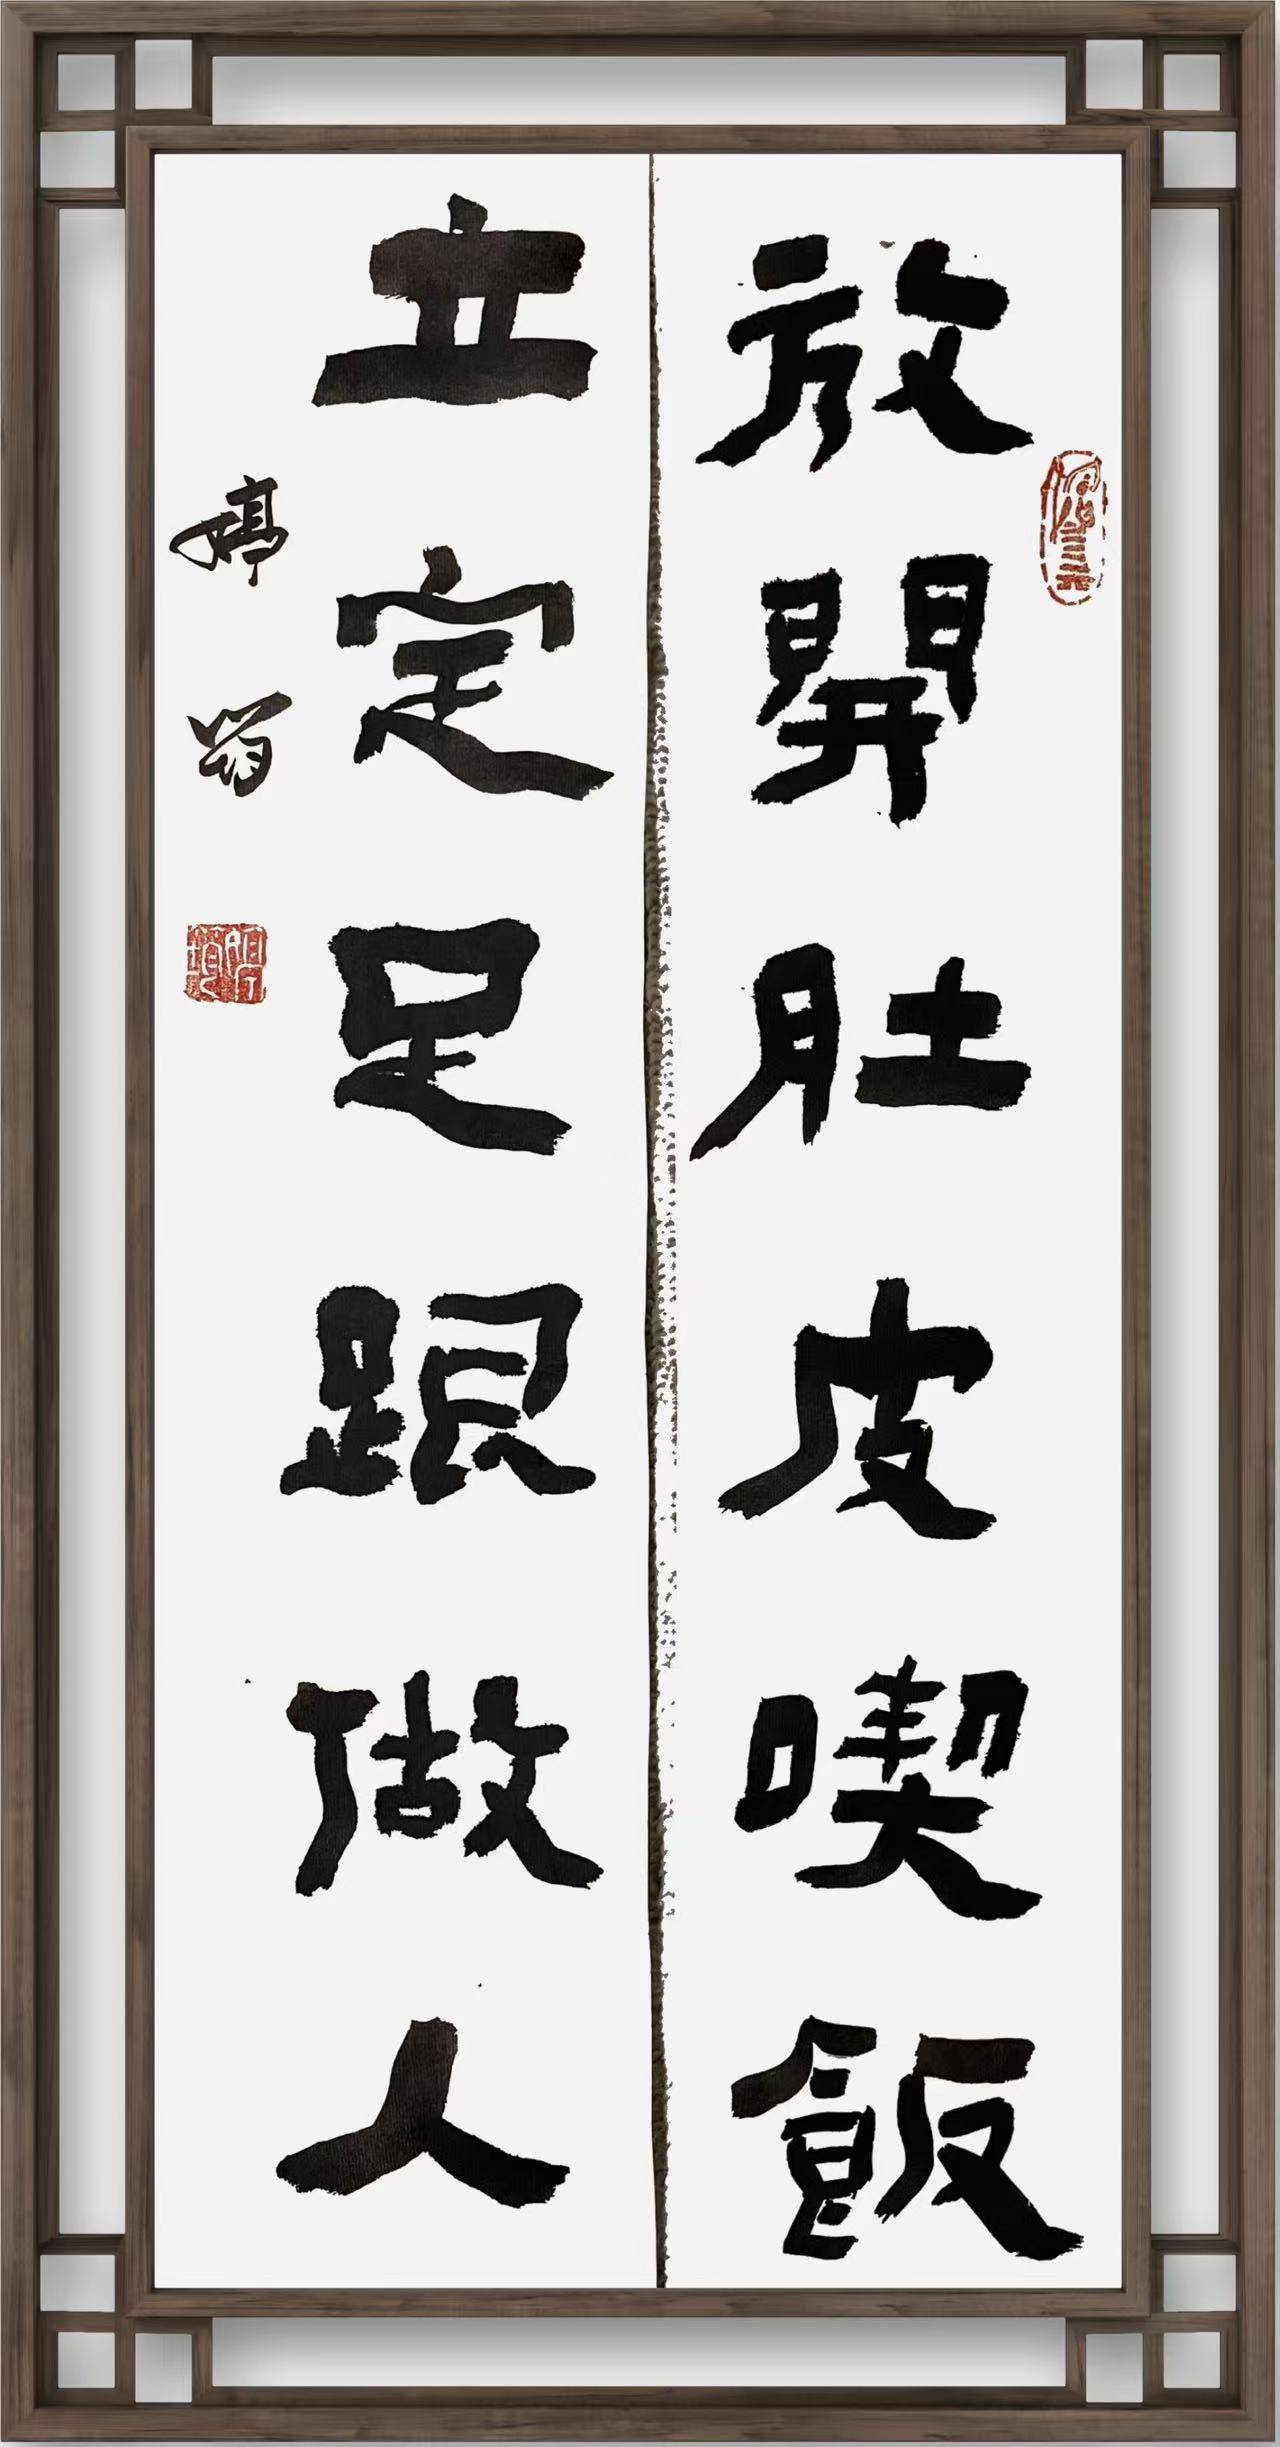 放開肚皮喫飯
立定足跟做人
婷習